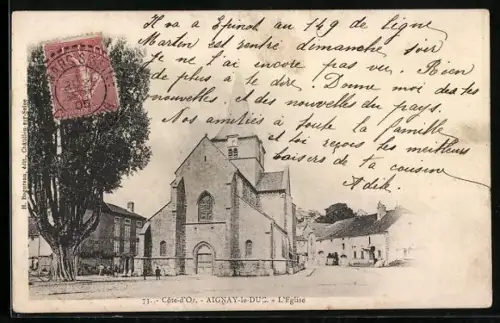 Il va à Epinal au 149 de ligne
Martin est rentré dimanche soir
je ne l'ai encore pas vu. Rien
de plus à te dire. Donne moi des tes
nouvelles et des nouvelles du pays.
Nos amitiés à toute la famille
et toi reçois les meilleurs
baisers de ta cousine
H. édit, Châtillon-sur-Seine
73. - Côte-d'Or. - AIGNAY-le-DUC. - L'Eglise